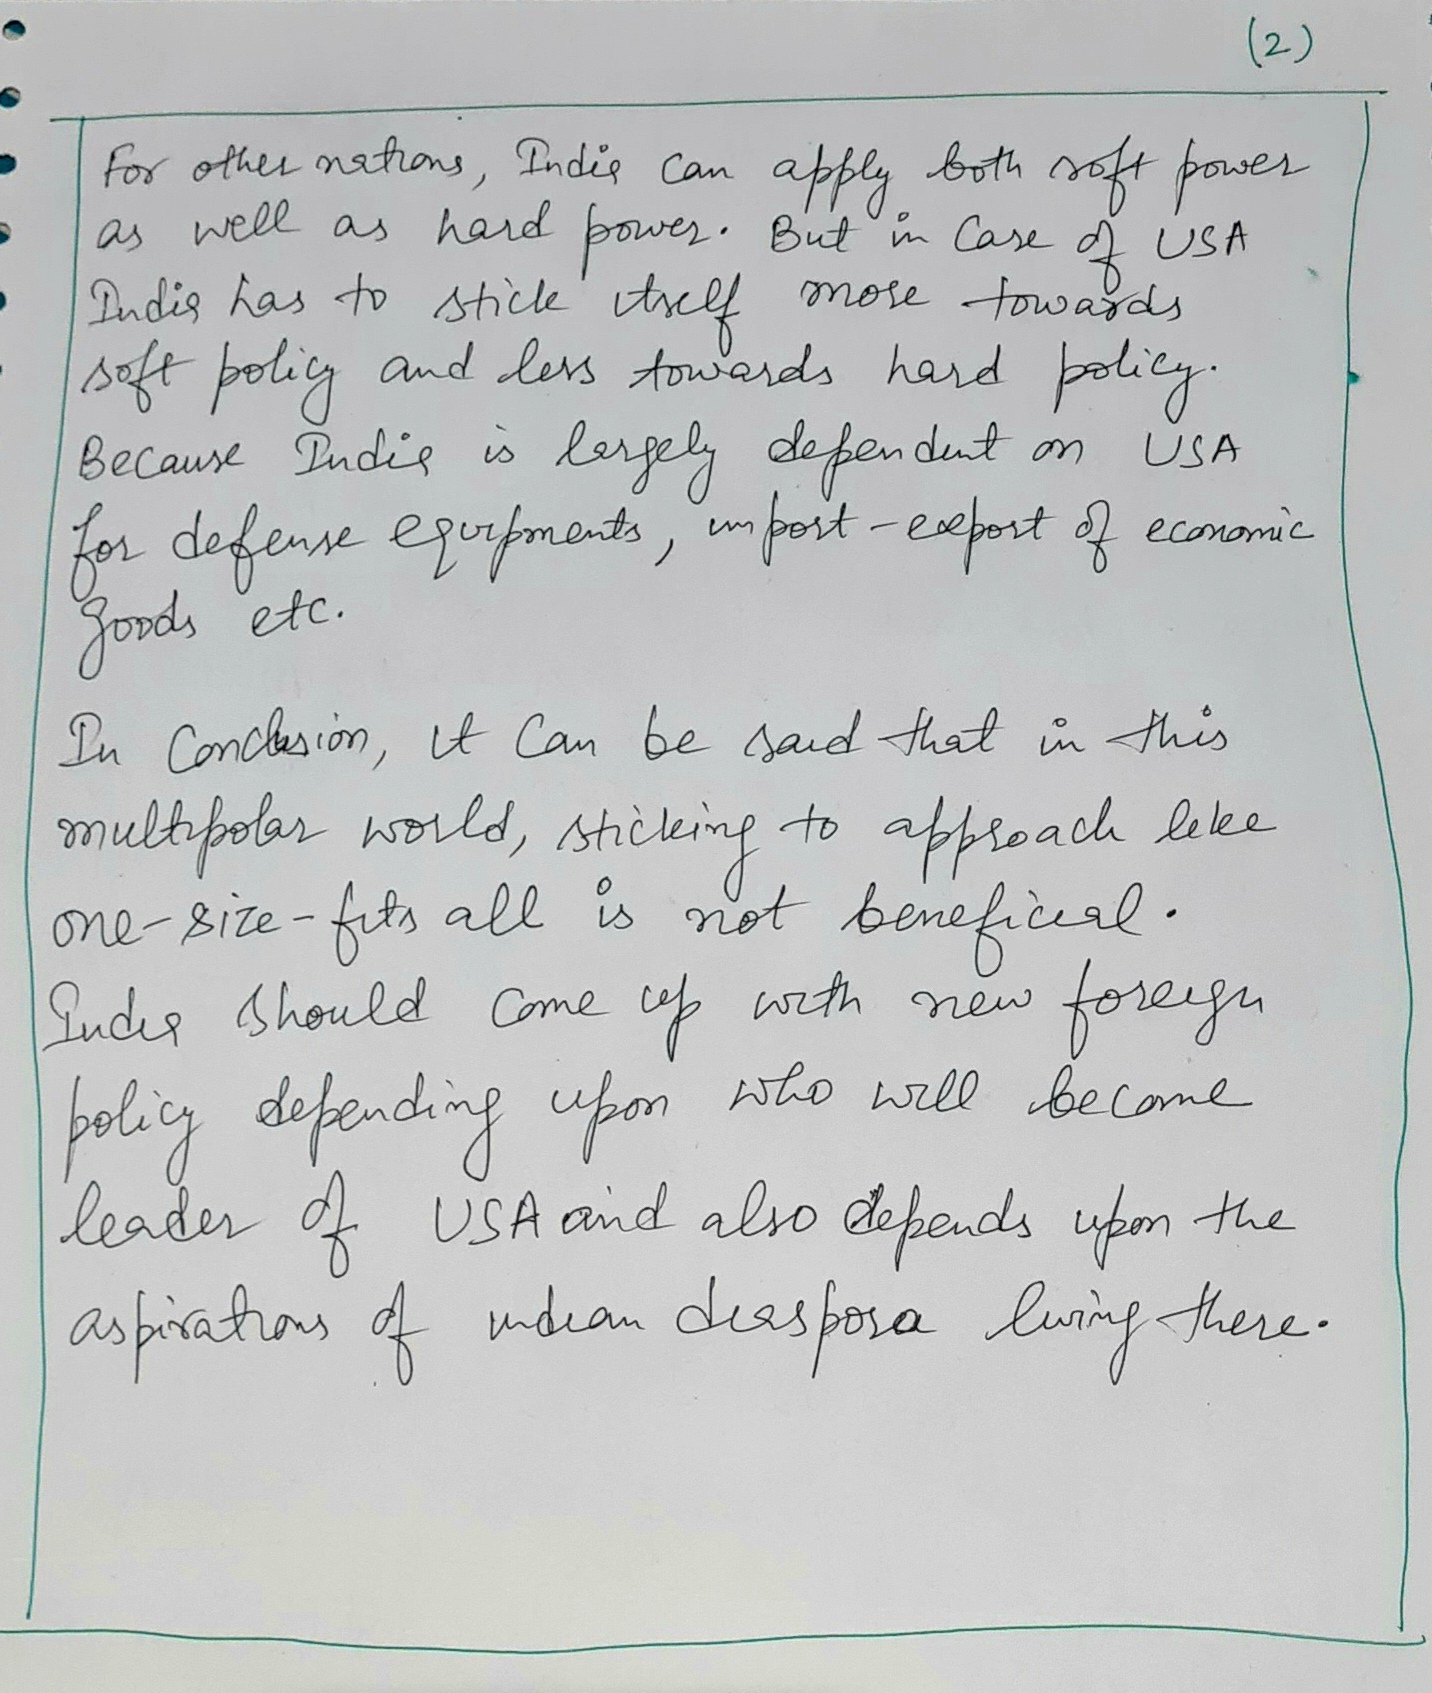 (2)
For other nations, India can apply both soft power
as well as hard power. But in case of USA
India has to stick itself more towards
soft policy and less towards hard policy.
Because India is largely dependent on USA
for defense equipments, import-export of economic
goods etc.
In Conclusion, it can be said that in this
multipolar world, sticking to approach like
one-size-fits all is not beneficial.
India should come up with new foreign
policy depending upon who will become
leader of USA and also depends upon the
aspirations of indian diaspora living there.